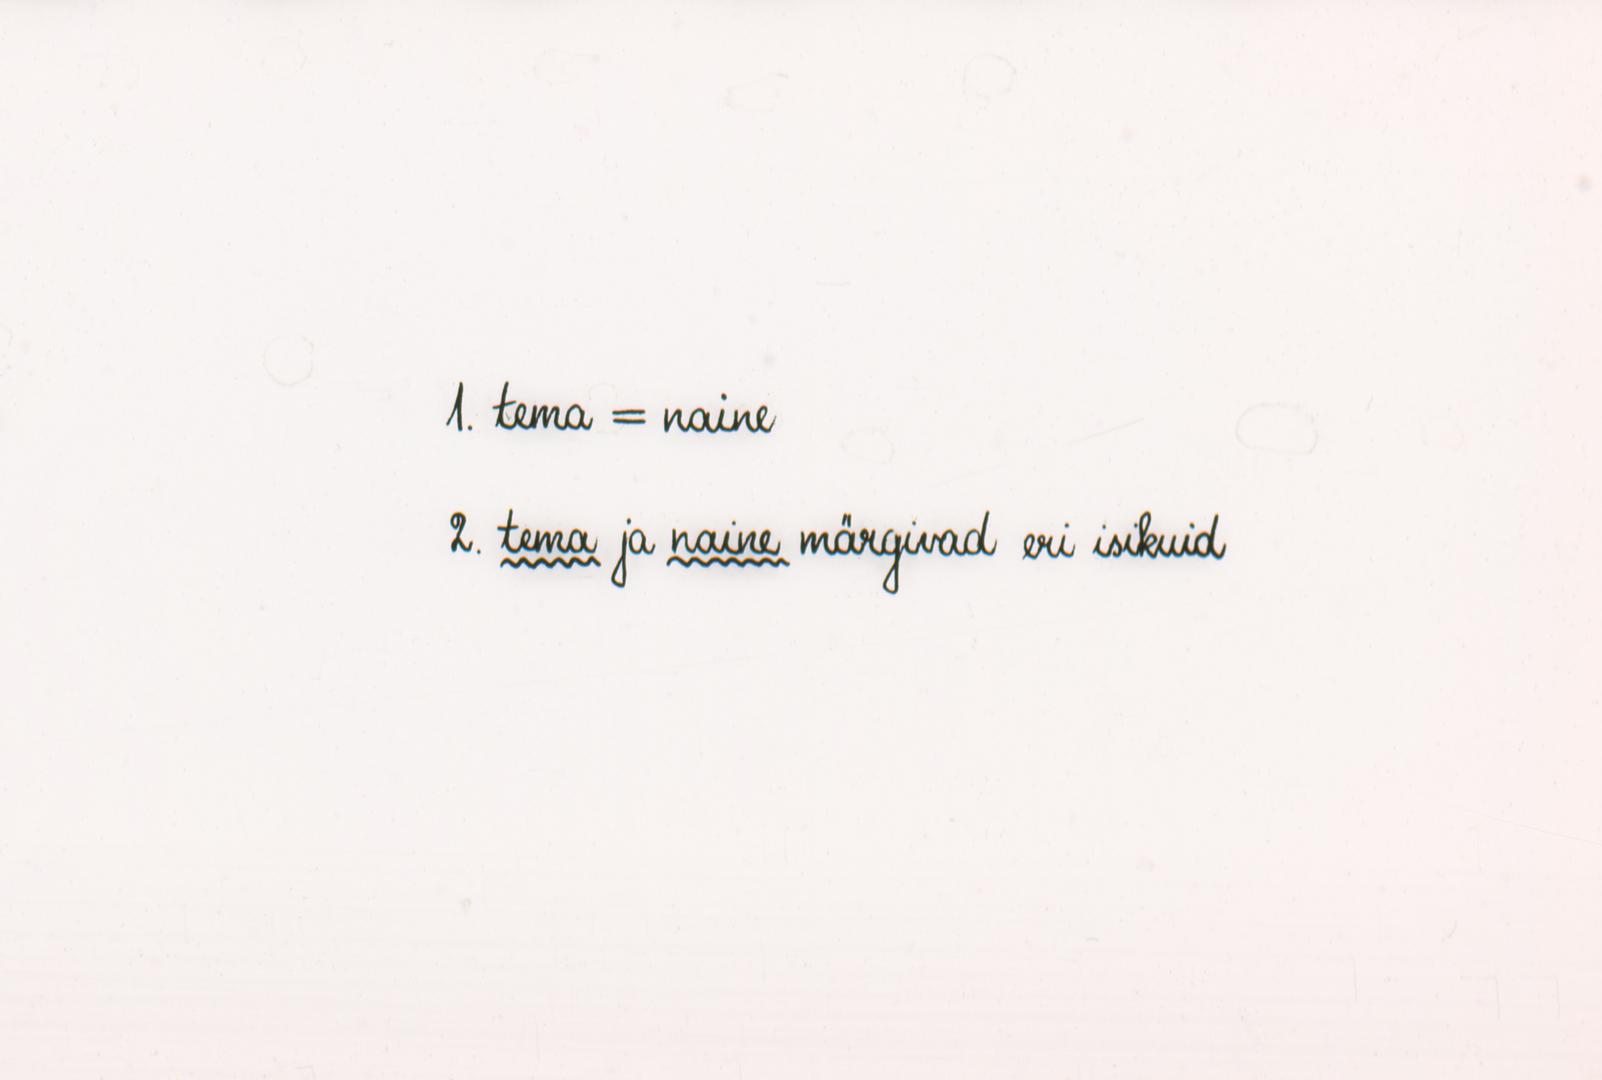 1. tema = naine
2. tema ja naine märgivad eri isikuid